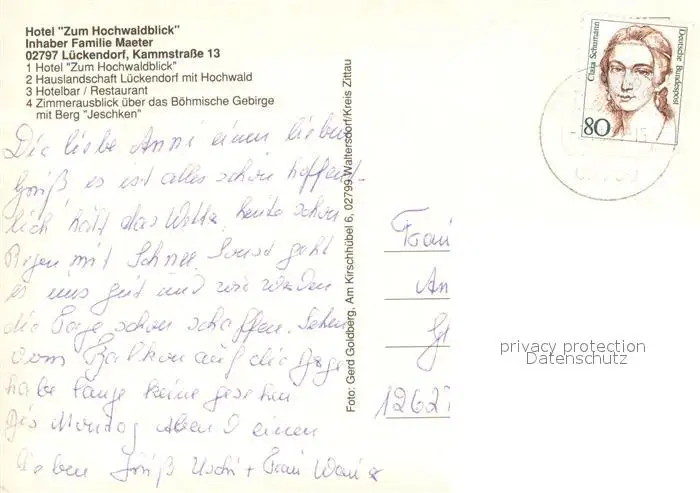 Hotel "Zum Hochwaldblick"
Inhaber Familie Maeter
02797 Lückendorf, Kammstraße 13
1 Hotel "Zum Hochwaldblick"
2 Hauslandschaft Lückendorf mit Hochwald
3 Hotelbar / Restaurant
4 Zimmerausblick über das Böhmische Gebirge
mit Berg "Jeschken"
Dir liebe Anni einen lieben
Gruß, es ist alles schön hoffent-
lich hält das Wetter, heute schon
Regen mit Schnee. Sonst geht
es uns gut und wir werden
die Tage schon schaffen. Sehen
vom Balkon auf die
habe lange keine gesehen
Bis Montag Abend einen
lieben Gruß Uschi + Frau
Foto: Gerd Goldberg, Am Kirschhübel 6, 02799 Waltersdorf/Kreis Zittau
Clara Schumann
Deutsche Bundespost
80
Frau
An
12627
privacy protection
Datenschutz